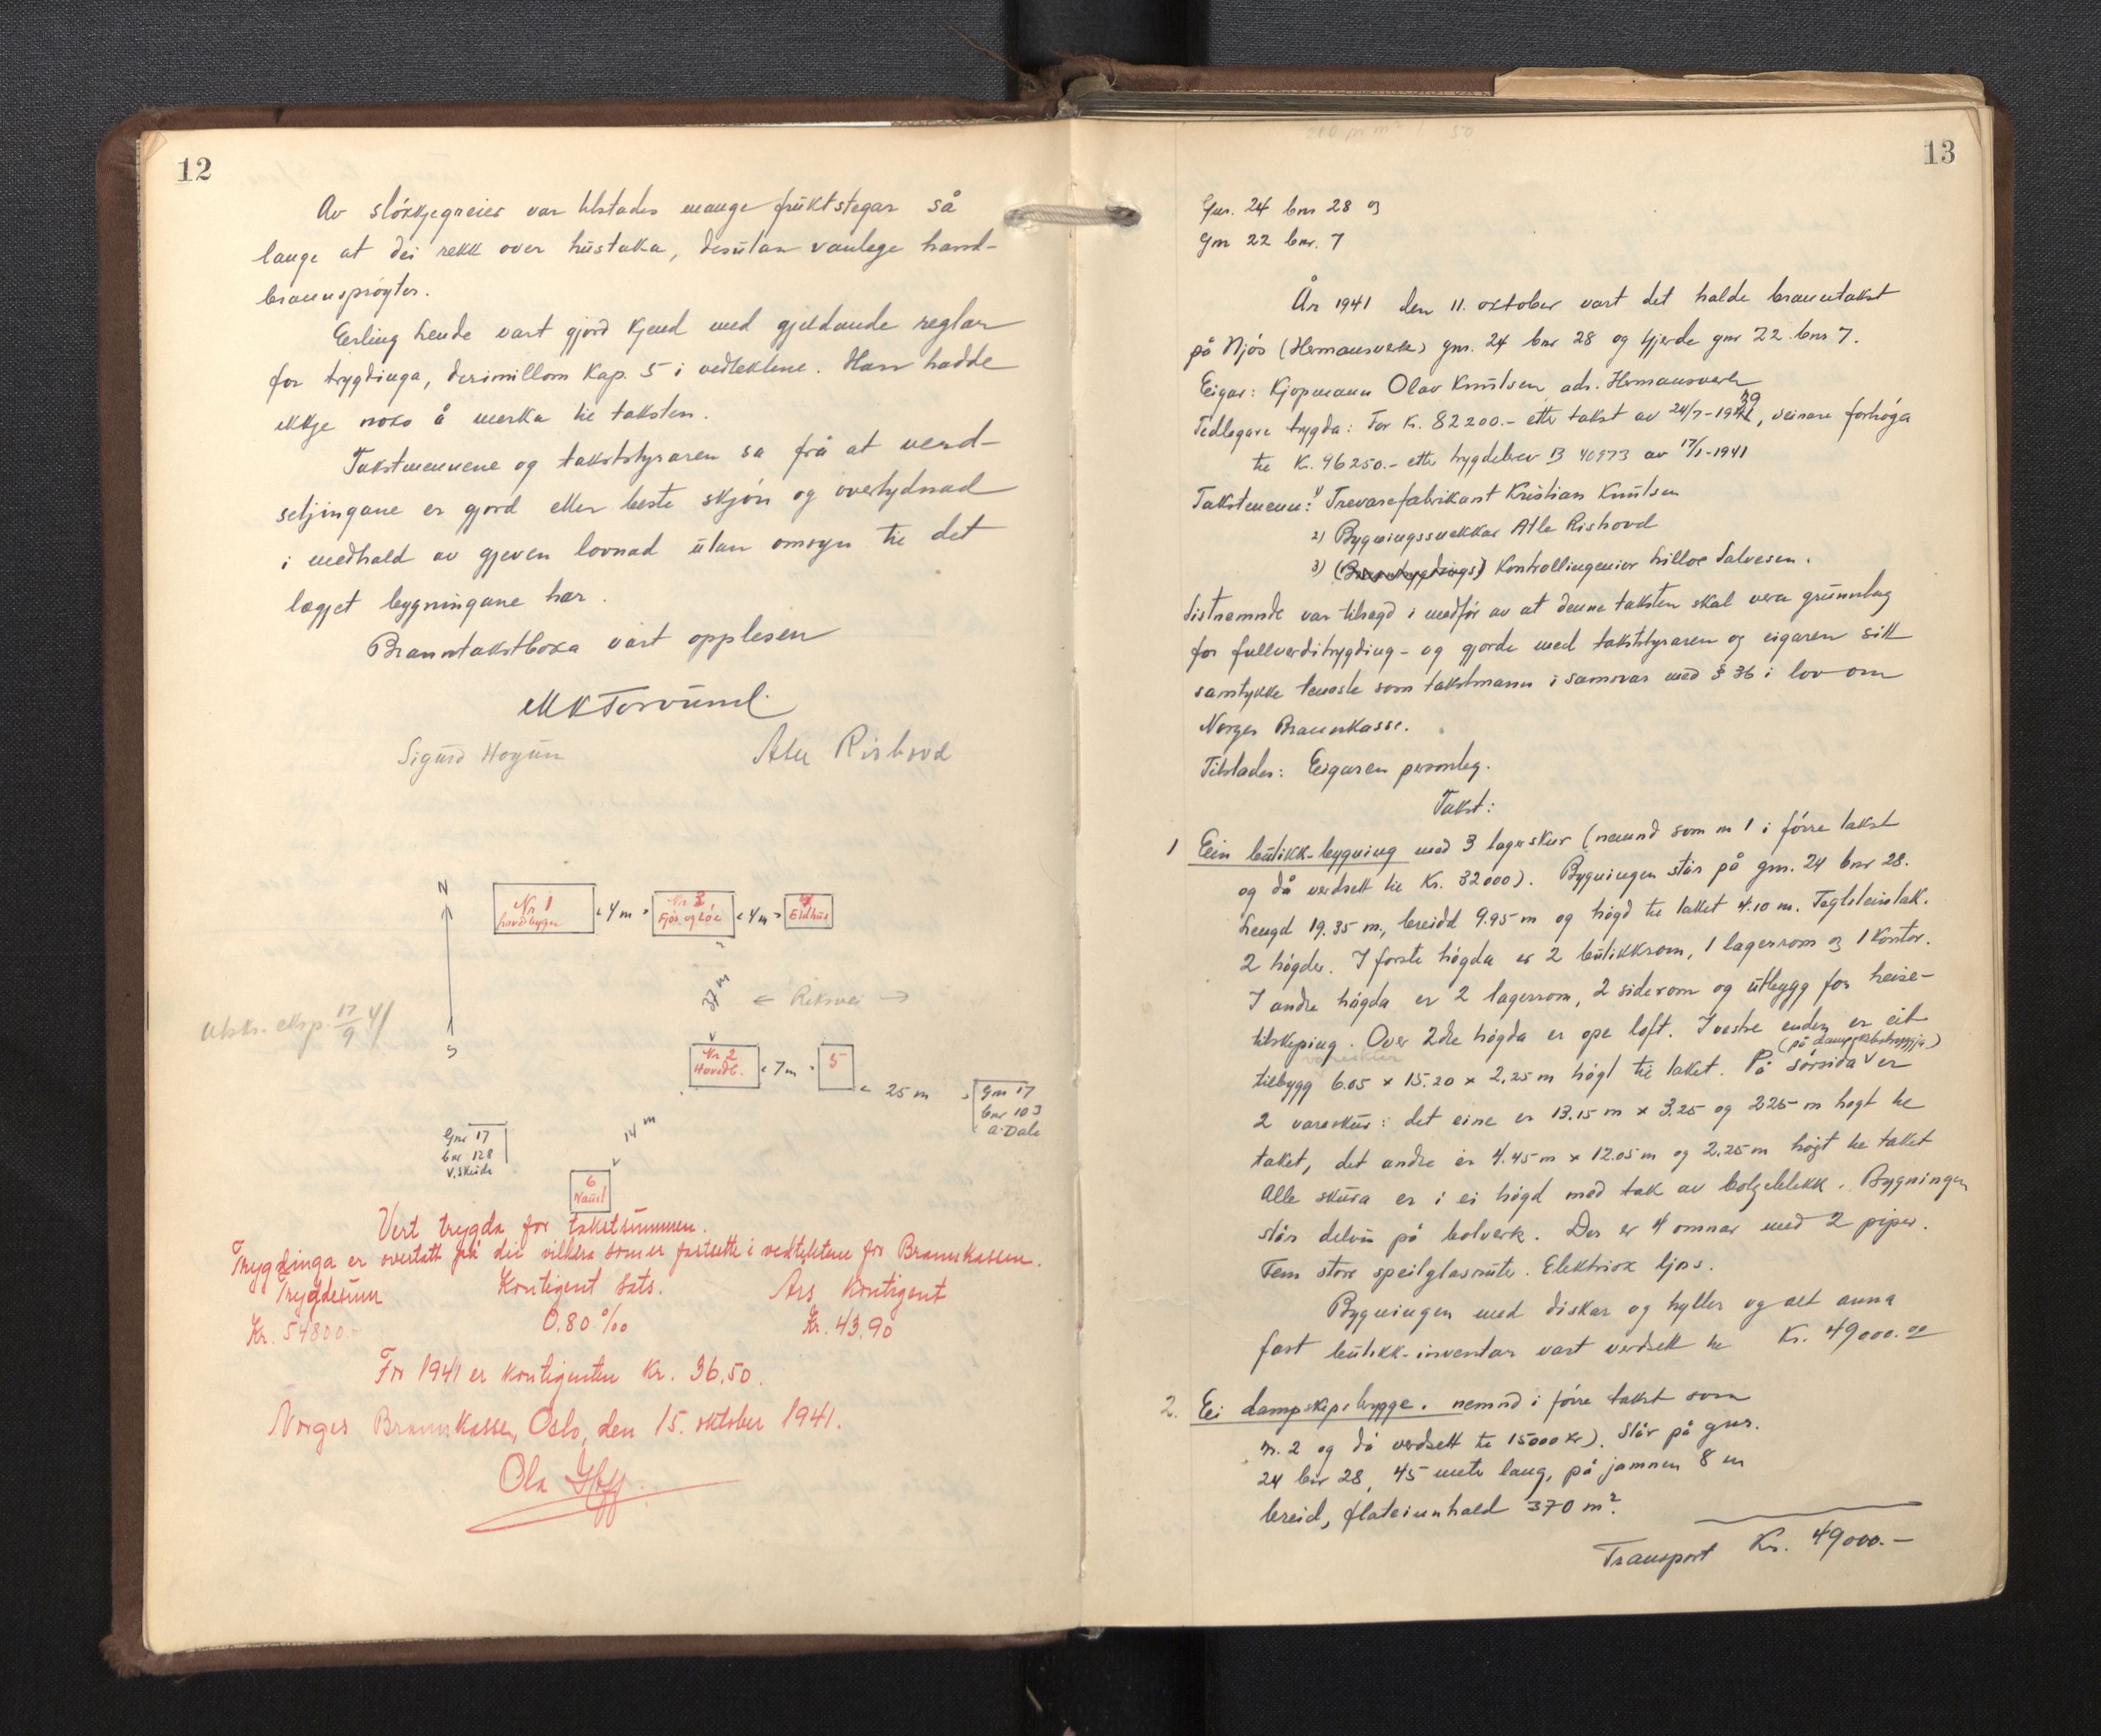 12
Av slökkjegreier var tilstades mange fruktstegar så
lange at dei rekk over hustaka, desutan vanlege hand-
brannsprøyter.
Erling Hende vart gjord kjend med gjeldande reglar
for trygdinga, derimillom Kap. 5 i vedtektene. Han hadde
ikkje noko å merka til taksten.
Takstmennene og takststyraren sa frå at verd-
setjingane er gjord etter beste skjön og overtydnad
i medhald av gjeven lovnad utan omsyn til det
lægjet bygningane har.
Branntakstboka vart opplesen
Sigurd Hogun
Atle Rishovd
N
Nr 1
hovedbygn
4 m
Nr 3
Fjös og löe
4 m
4
Eldhus
37 m
← Riksvei →
Utskr. eksp. 17/9 41
S
Nr 2
Hovedb.
7 m
5
25 m
Gnr 17
bnr 103
A. Dale
Gnr 17
bnr 128
V. Skeide
14 m
6
Naust
Vert trygda for takstsummen.
Trygdinga er overtatt på dei vilkåra som er fastsette i vedtektene for Brannkassen.
Trygdesum Kontigent sats. Års kontigent
Kr. 54800.- 0.80 ‰ Kr. 43.90
For 1941 er kontigenten kr. 36.50.
Norges Brannkasse, Oslo, den 15. oktober 1941.
Ola
13
Gnr. 24 bnr 28 og
Gnr 22 bnr. 7
År 1941 den 11. oktober vart det halde branntakst
på Njös (Hermansverk) gnr. 24 bnr 28 og Gjerde gnr 22 bnr 7.
Eigar: Kjöpmann Olav Knutsen adr. Hermansverk
Tidlegare trygda: For Kr. 82200.- etter takst av 24/7-1939, seinare forhöga
til Kr. 96250.- etter trygdebrev B 40973 av 17/1-1941
Takstmenn: 1) Trevarefabrikant Kristian Knutsen
2) Bygningssnekkar Atle Rishovd
3) (Branntrygdings) Kontrollingeniør Salvesen.
Sistnemnde var tilsagd i medför av at denne taksten skal vera grunnlag
for fullverditrygding - og gjorde med takststyraren og eigaren sitt
samtykke teneste som takstmann i samsvar med § 36 i lov om
Norges Brannkasse.
Tilstades: Eigaren personleg.
Takst:
1 Ein butikk-bygning med 3 lagerskur (nemnd som nr 1 i förre takst
og då verdsett til Kr. 32000). Bygningen står på gnr. 24 bnr 28.
Lengd 19.35 m., breidd 9.95 m og högd til taket 4.10 m. Taglsteinstak.
2 högder. I fyrste högda er 2 butikkrom, 1 lagerrom og 1 kontor.
I andre högda er 2 lagerrom, 2 siderom og utbygg for heise-
tilskiping. Over 2dre högda er ope loft. I vestre enden er eit
vareskur
(på dampskibsbryggja)
tilbygg 6.05 x 15.20 x 2.25 m högt til taket. På sörsida er
2 vareskur: det eine er 13.15 m x 3.25 og 225 m högt til
taket, det andre er 4.45 m x 12.05 m og 2.25 m högt til taket
Alle skura er i ei högd med tak av bolgeblekk. Bygningen
står delvis på bolverk. Der er 4 omnar med 2 piper.
Fem store speilglasruter. Elektrisk ljos.
Bygningen med diskar og hyller og alt anna
fast butikk-inventar vart verdsett til Kr. 49000.00
2. Ei dampskipsbrygge. nemnd i förre takst som
nr. 2 og då verdsett til 15000 kr). Står på gnr.
24 bnr 28, 45 meter lang, på jamnen 8 m
breid, flateinnhald 370 m².
Transport Kr. 49000.-